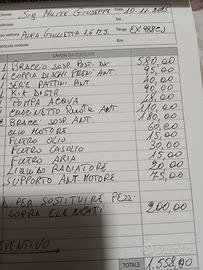 Cliente SIG. MONTE GIUSEPPE Data 10.12.2025
Tel.
tipo vettura ALFA GIULIETTA 1.6 MJ Targa EX988CJ
LAVORI DA ESEGUIRE
1 BRACCIO SOSP. POST. DX 580,00
1 COPPIA DISCHI FRENI ANT. 95,00
1 SERIE PATTINI ANT. 40,00
1 KIT DISTR. 90,00
1 POMPA ACQUA 48,00
1 CUSCINETTO RUOTA ANT. 110,00
2 BRACC. SOSP. ANT. 180,00
OLIO MOTORE 60,00
FILTRO OLIO 15,00
FILTRO GASOLIO 30,00
FILTRO ARIA 15,00
LIQUIDO RADIATORE 20,00
SUPPORTO ANT. MOTORE 75,00
PER SOSTITUIRE PEZZI
SOPRA ELENCATI 200,00
TOTALE 1.558,00